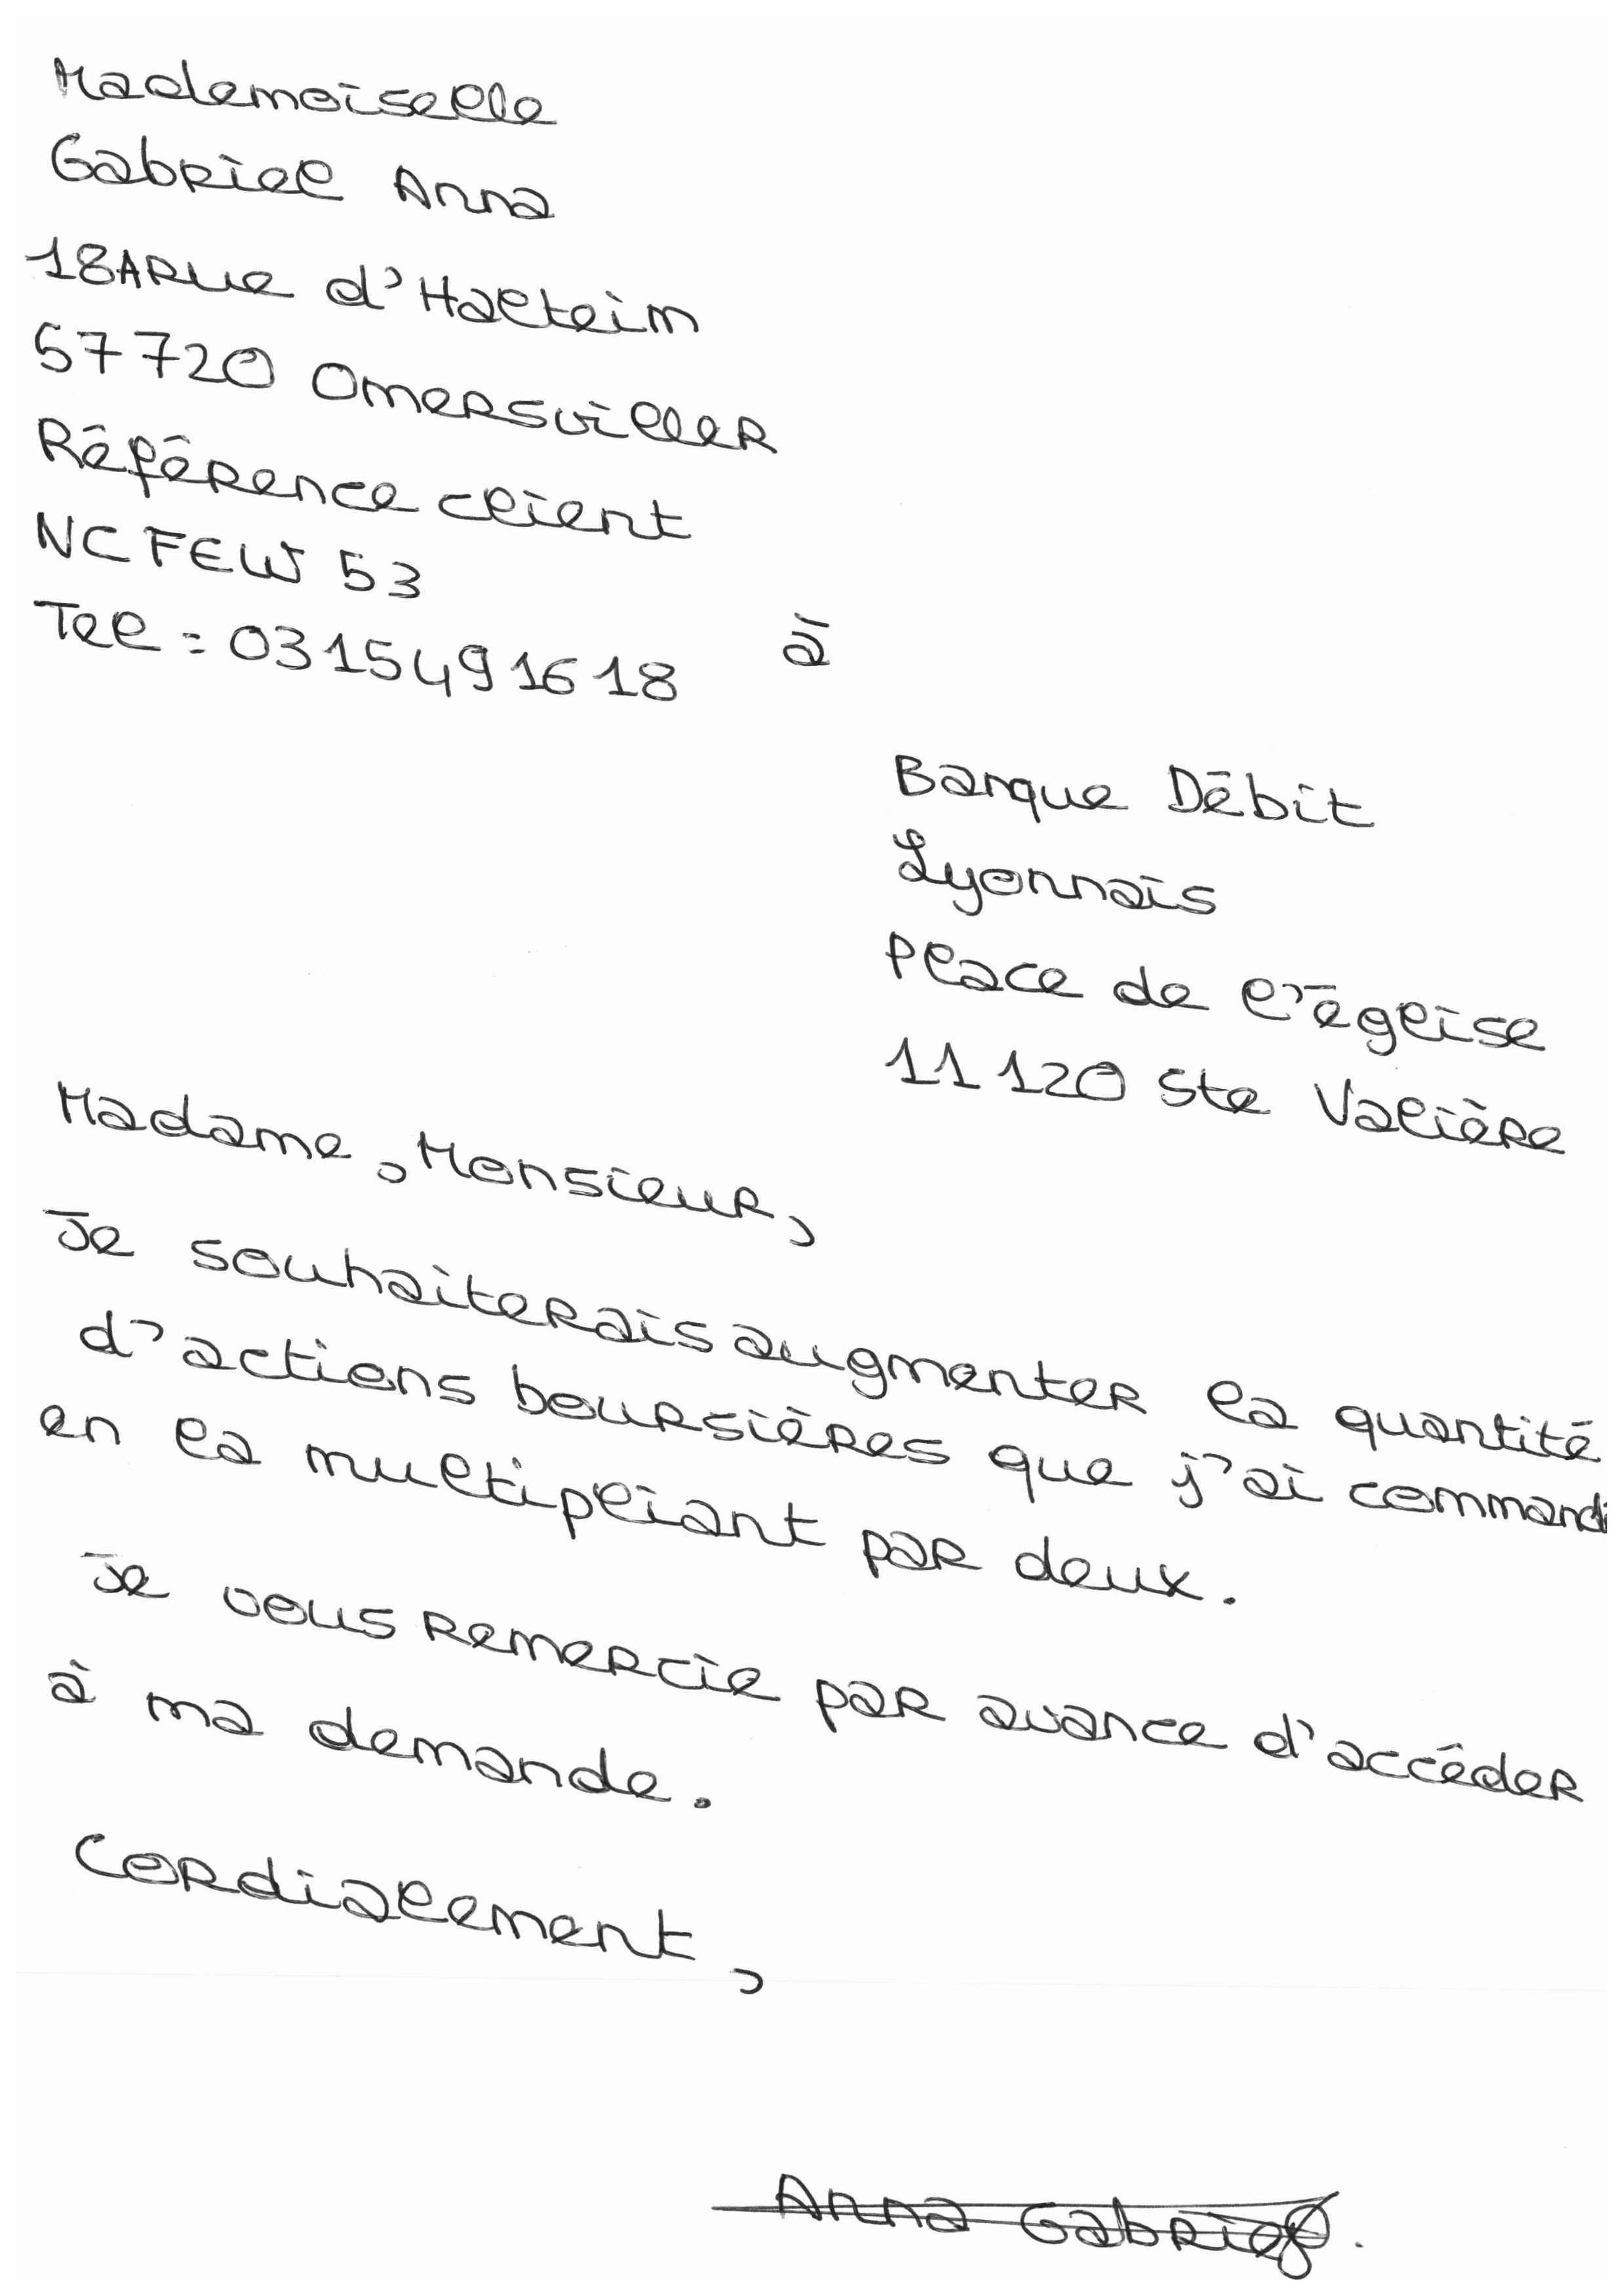 Mademoiselle
Gabriel Anna
18A Rue d'Halteim
57720 Omersviller
Référence client
NCFEW 53
Tel : 0315491618 à
Banque Débit
Lyonnais
Place de l'église
11120 Ste Valière
Madame, Monsieur,
Je souhaiterais augmenter la quantité
d'actions boursières que j'ai command
en la multipliant par deux.
Je vous remercie par avance d'accéder
à ma demande.
Cordialement,
Anna Gabriel.